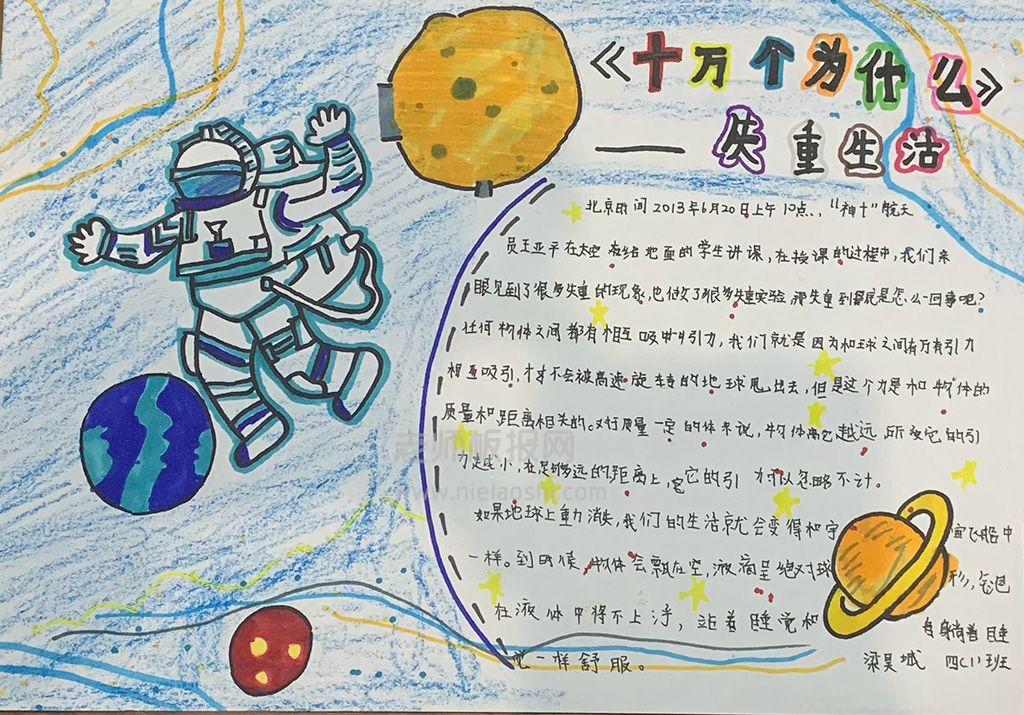 《十万个为什么》
——失重生活
北京时间2013年6月20日上午10点、“神十”航天
员王亚平在太空 给地面的学生讲课,在授课的过程中,我们亲
眼见到了很多失重的现象,也做了很多失重实验,那失重到底是怎么一回事呢?
任何物体之间都有相互吸 引力,我们就是因为和球之间有万有引力
相互吸引,才不会被高速旋转的地球甩出去,但是这个力是和物体的
质量和距离相关的。对于质量一定的体来说,物体离它越远,所受它的引
力越小,在足够远的距离上,它的引 力可以忽略不计。
如果地球上重力消失,我们的生活就会变得和宇宙飞船中
一样。到时候,物体会飘在空,液滴呈绝对球形,气泡
在液体中将不上浮,站着睡觉和 自身躺着睡
觉一样舒服。
梁昊城 四(1)班
老师板报网
www.nielaoshi.com